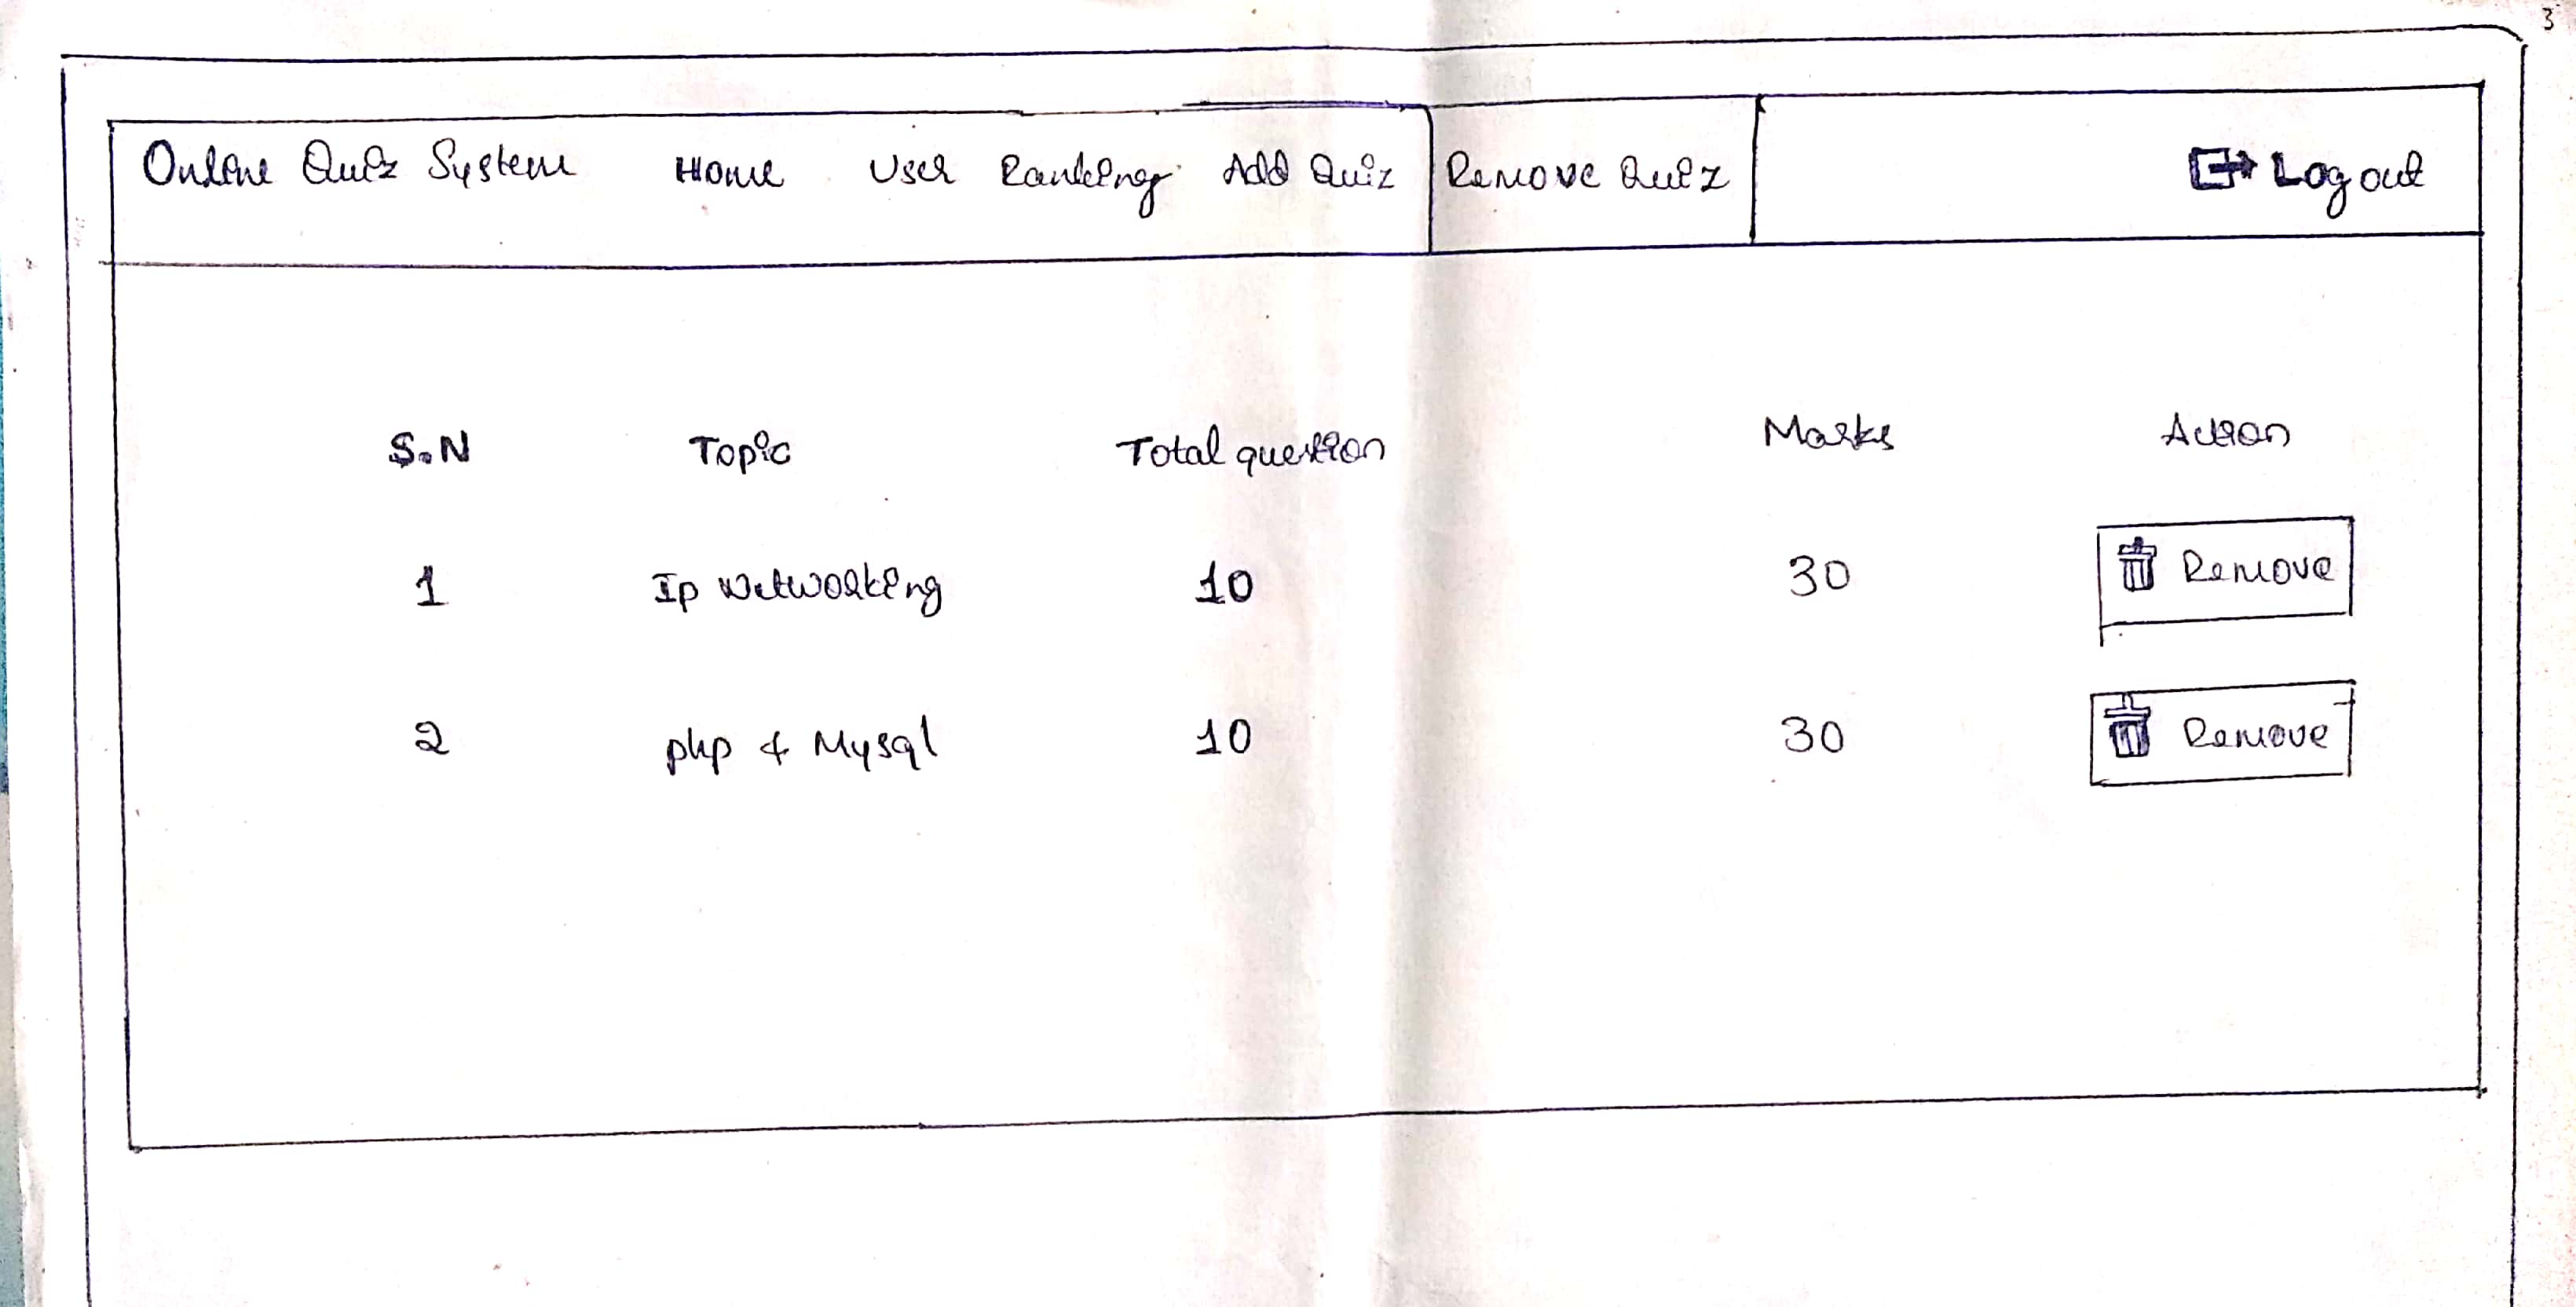 3
Online Quiz System Home User Ranking Add Quiz Remove Quiz Logout
S.N Topic Total question Marks Action
1 Ip Networking 10 30 Remove
2 php & Mysql 10 30 Remove